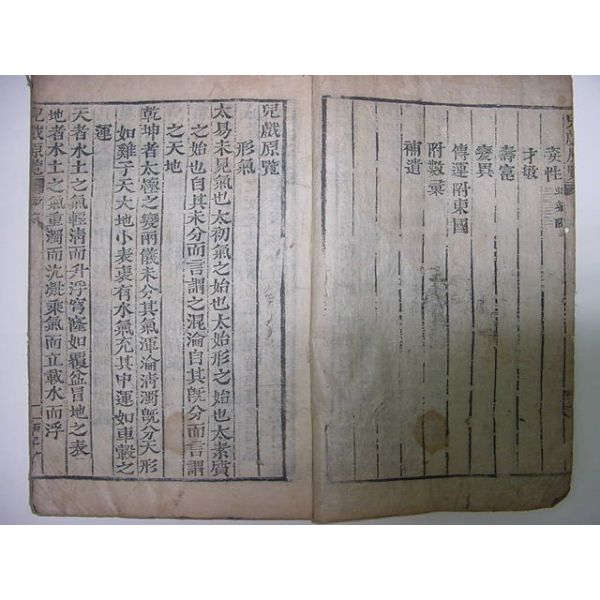 姿性
才敏
壽富
變異
傳運附東國
附數彙
補遺
兒戲原覽
形氣
太易未見氣也太初氣之始也太始形之始也太素質
之始也自其未分而言謂之混淪自其旣分而言謂
之天地
乾坤者太極之變兩儀未分其氣渾淪淸濁旣分天形
如雞子天大地小表裏有水氣充其中運如車轂之
運
天者水土之氣輕淸而升浮穹隆如覆盆冒地之表
地者水土之氣重濁而沈凝乘氣而立載水而浮
兒戲原覽